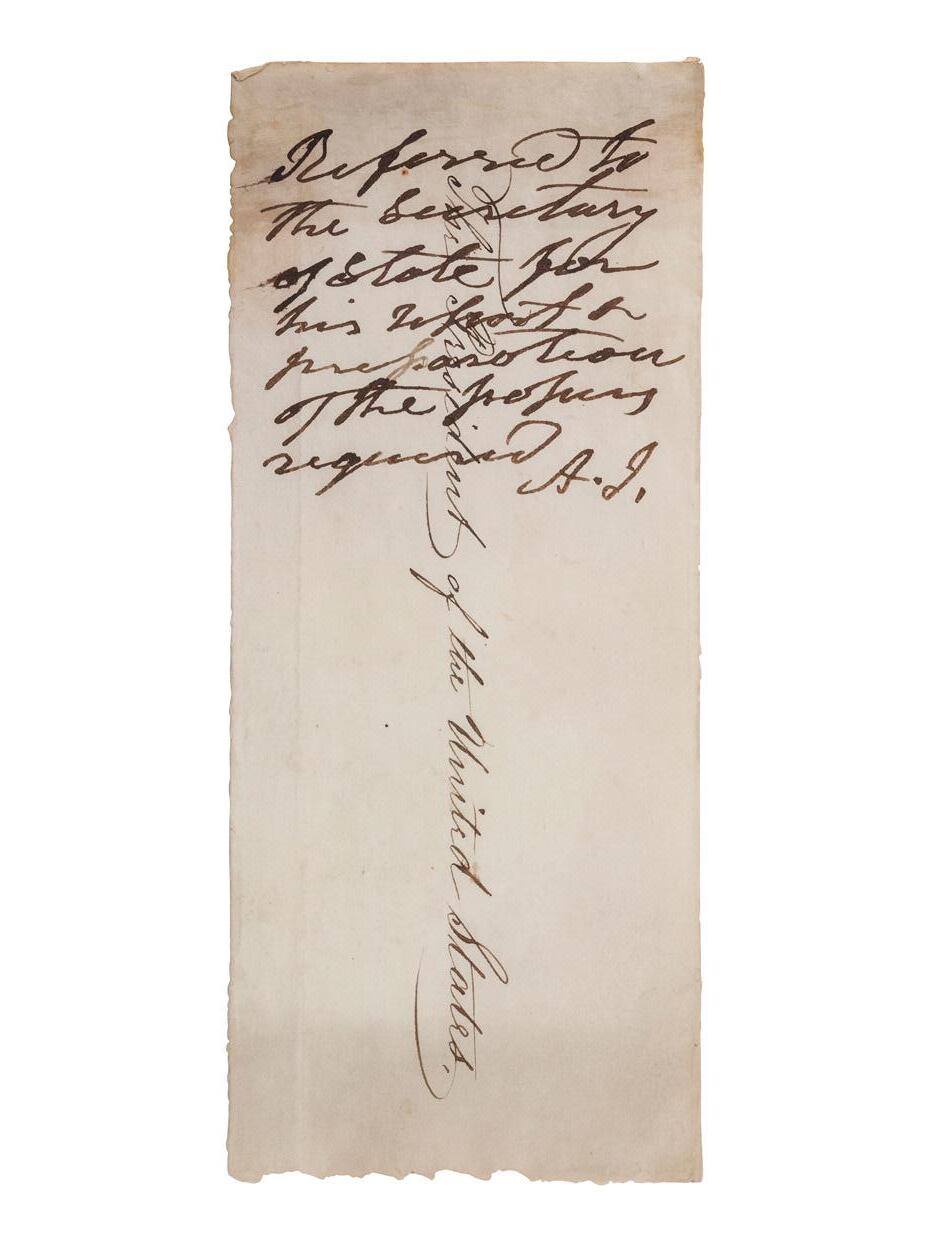 Referred to
the Secretary
of State for
his report &
preparation
of the papers
required
A.J.
The President of the United States.